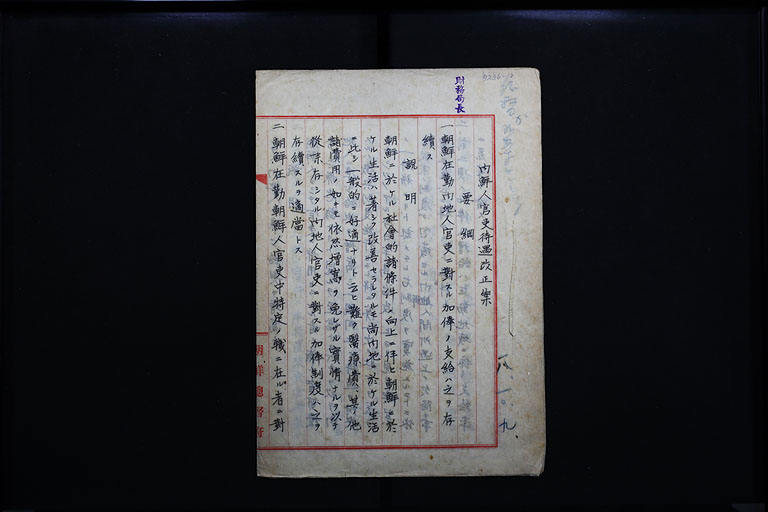 財務局長
內鮮人官吏待遇改正案
要綱
一 朝鮮在勤內地人官吏ニ對スル加俸ノ支給ハ之ヲ存
續ス
說明
朝鮮ニ於ケル社會的諸條件ノ向上ニ伴ヒ朝鮮ニ於
ケル生活ハ著シク改善セラレタルモ尚內地ニ於ケル生活
ニ比シ一般的ニ好適ナリト云ヒ難ク醫療費、其ノ他
諸費用ノ如キモ依然增嵩ヲ免レザル實情ナルヲ以テ
從來存シタル內地人官吏ニ對スル加俸制度ハ之ヲ
存續スルヲ適當トス
二 朝鮮在勤朝鮮人官吏中特定ノ職ニ在ル者ニ對
朝鮮總督府